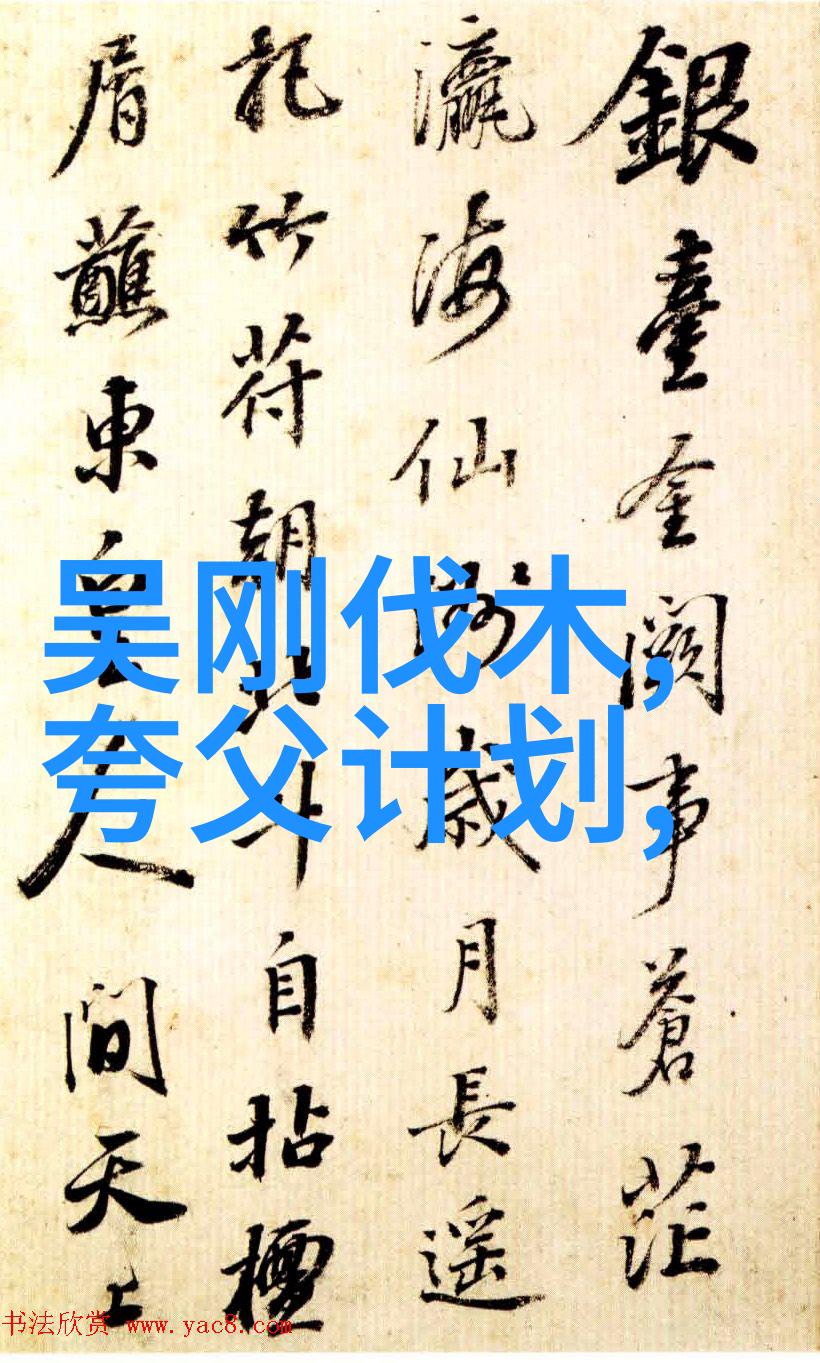 銀臺金闕事蒼茫
瀛海仙洲歲月長遥
竹符朝北斗自拈檀
屑蘸東皇人間天上
吴刚伐木,
夸父计划,
书法欣赏 www.yac8.com